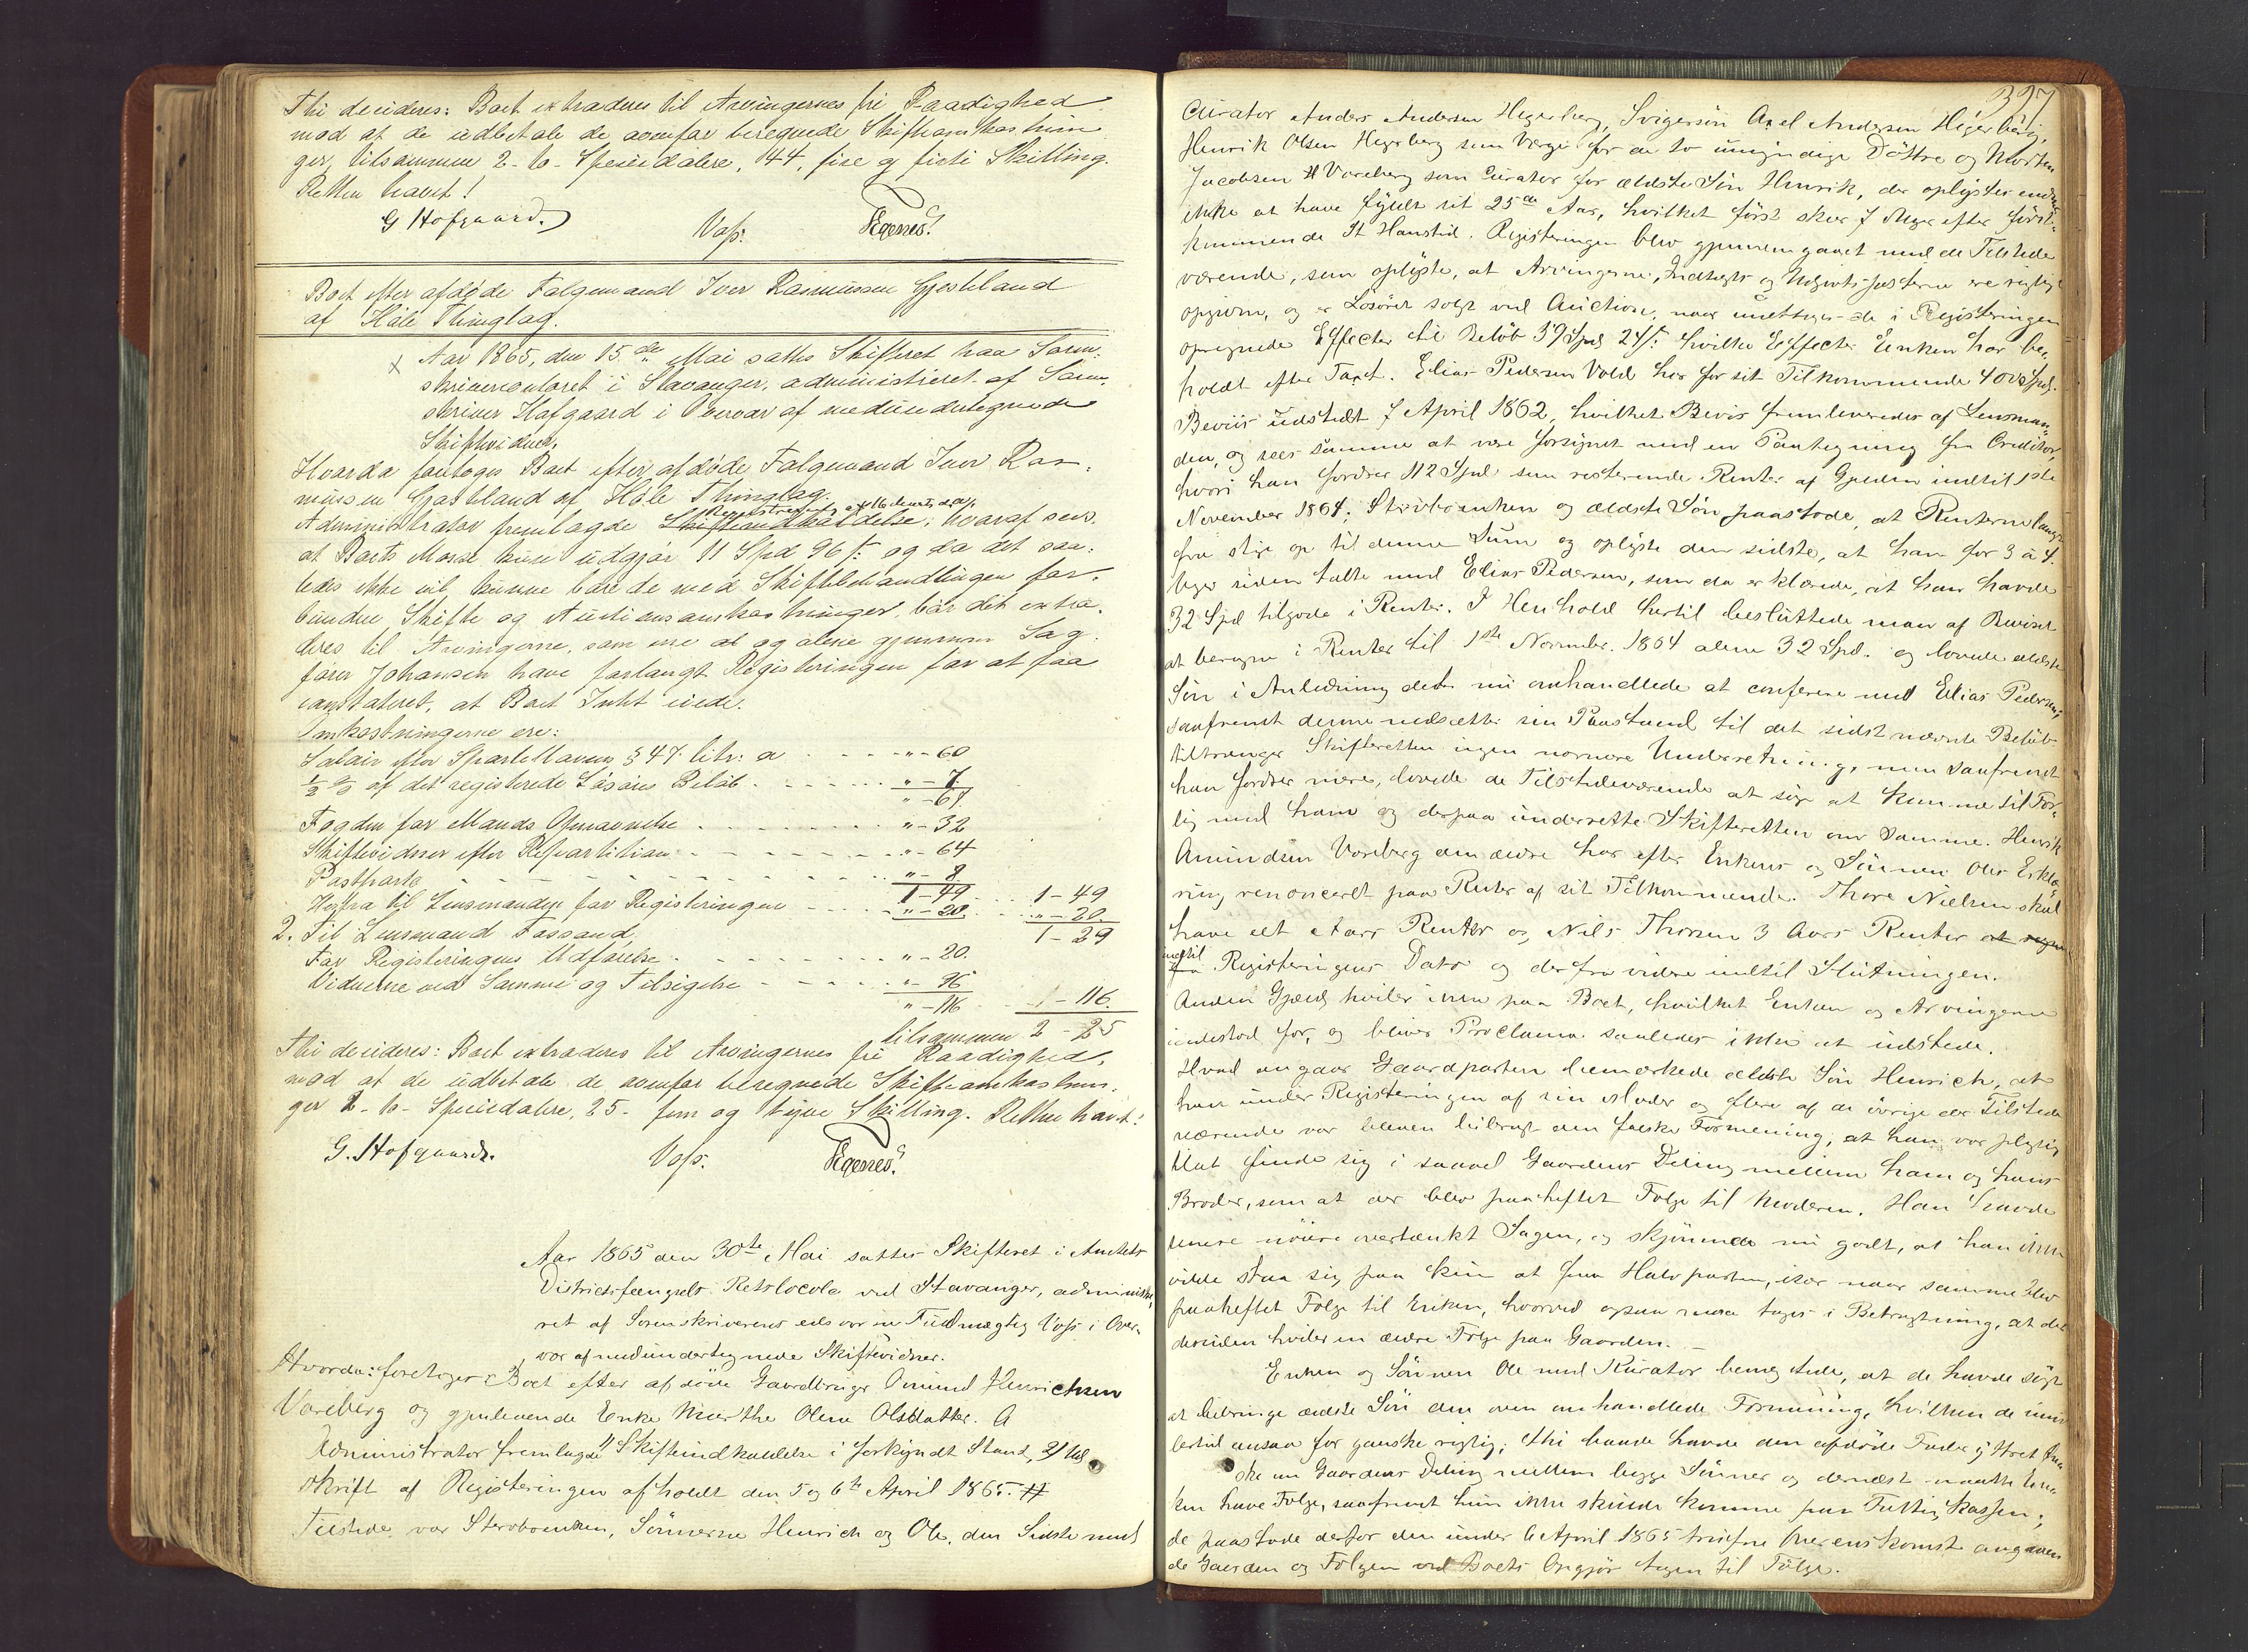 Thi decideres: Boet extraderes til Arvingernes fri Raadighed
mod at de udbetale de ovenfor beregnede Skifteomkostnin
ger, tilsammen 2 - to - Speciedalere, 44, fire og firti Skilling.
Retten hævet!
G Hofgaard. Voss. Egenes.
Boet efter afdøde Følgemand Iver Rasmussen Gjosteland
af Håle Thinglag.
Aar 1865, den 15de Mai sattes Skifteret paa Soren-
skrivercontoret i Stavanger, administreret af Soren-
skriver Hofgaard i Overvær af medundertegnede
Skiftevidner.
Hvorda foretoges Boet efter afdøde Følgemand Iver Ras-
mussen Gjosteland af Håle Thinglag.
Administrator fremlagde Registrering af 16 Marts d.A., hvoraf sees
at Boets Masse kun udgjør 11 Spd 96 s. og da det saa-
ledes ikke vil kunne bære de med Skiftebehandlingen for-
bundne Skifte og Auctionsomkostninger, bør det extra-
deres til Arvingerne, som ene og alene gjennem Sag-
fører Johansen have forlangt Registeringen for at faa
constateret, at Boet Intet eiede.
Omkostningerne ere:
Salair efter Sportellovens § 47 litr. a - - - " - 60
½ % af det registerede Løsøres Beløb - - - " - 7
" - 67
Fogden for Mands Opnævnelse - - - " - 32
Skiftevidner efter Repartition - - - " - 64
Postporto - - - " - 8
1 - 49 1 - 49
Herfra til Lensmanden for Registeringen - - - " - 20. " - 20.
1 - 29
2. Til Lensmand Tassaud
For Registeringens Udførelse - - - " - 20.
Vidnerne ved Samme og Tilsigelse - - - " - 96
" - 116 " - 116.
tilsammen 2 - 25
Thi decideres: Boet extraderes til Arvingernes fri Raadighed,
mod at de udbetale de ovenfor beregnede Skifteomkostnin-
ger 2 - to - Speciedalere, 25 - fem og tyve Skilling. Retten hævet!
G. Hofgaard. Voss. Egenes.
Aar 1865 den 30te Mai sattes Skifteret i Amtets
Districtsfængsels Retslocale ved Stavanger, administre-
ret af Sorenskriverens edsvorne Fuldmægtig Voss i Over-
vær af medundertegnede Skiftevidner.
Hvorda: foretoges Boet efter afdøde Gaardbruger Omund Henrichsen
Voreberg og gjenlevende Enke Marthe Olene Olsdatter.
Administrator fremlagde 1) Skifteindkaldelse i forkyndt Stand, 2) Ud
skrift af Registeringen afholdt den 5 og 6te April 1865.
Tilstede var Stervboenken, Sønnerne Henrich og Ole, den Sidste med
397
Curator Anders Andersen Hegerberg, Svigersøn Axel Andersen Hegerberg,
Henrik Olsen Hegerberg som Værge for de to umyndige Døttre og Morten
Jacobsen Voreberg som Curator for ældste Søn Henrik, der oplystes endnu
ikke at have fyldt sit 25de Aar, hvilket først sker 7 Uger efter først-
kommende St Hanstid. Registeringen blev gjennemgaaet med de Tilstede
værende, som oplyste, at Arvingerne, Indtægts og Udgivtsposterne ere rigtigt
opgivne, og er Løsøret solgt ved Auction, naar undtages de i Registeringen
opregnede Effecter til Beløb 39 Spd 24 s. hvilke Effecter Enken har be-
holdt efter Taxt. Elias Pedersen Vold har for sit Tilkommende 400 Spd.
Beviis udstedt 7 April 1862, hvilket Bevis fremleveredes af Lensman-
den, og sees samme at være forsynet med en Paategning fra Creditor,
hvori han fordrer 112 Spd som resterende Renter af Gjelden indtil 1ste
November 1864; Stervboenken og ældste Søn paastode, at Renterne langt
fra stige op til denne Sum og oplyste den sidste, at han for 3 à 4
Uger siden talte med Elias Pedersen, som da erklærede, at han havde
32 Spd tilgode i Renter. I Henhold hertil besluttede man af Beviset
at beregne i Renter til 1ste November 1864 alene 32 Spd. og lovede ældste
Søn i Anledning det nu omhandlede at conferere med Elias Pedersen;
saafremt denne nedsætter sin Paastand til det sidst nævnte Beløb
tiltrænger Skifteretten ingen nærmere Underretning, men saafremt
han fordrer mere, lovede de Tilstedeværende at søge at komme til For-
lig med ham og derpaa underrette Skifteretten om Samme. Henrik
Omundsen Voreberg den ældre har efter Enkens og Sønnen Oles Erklæ-
ring renonceret paa Renter af sit Tilkommende. Thore Nielsen skal
have et Aars Renter og Nils Thorsen 3 Aars Renter
indtil Registeringens Dato og derfra videre indtil Slutningen.
Anden Gjæld hviler ikke paa Boet, hvilket Enken og Arvingerne
indestod for, og bliver Proclama saaledes ikke at udstede.
Hvad angaar Gaardparten bemærkede ældste Søn Henrich, at
han under Registeringen af sin Moder og flere af de øvrige der Tilstede
værende var bleven bibragt den falske Formening, at han var pligtig
til at finde sig i saavel Gaardens Deling mellem ham og hans
Broder, som at der blev paaheftet Følge til Moderen. Han havde
senere nøiere overtænkt Sagen, og skjønnede nu godt, at han ikke
vilde staa sig paa kun at faa Halvparten, især naar samme blev
paaheftet Følge til Enken, hvorved ogsaa maa tages i Betragtning, at der
desuden hviler en ældre Følge paa Gaarden. -
Enken og Sønnen Ole med Kurator benegtede, at de havde søgt
at bibringe ældste Søn den oven omhandlede Formening, hvilken de imid
lertid ansaa for ganske rigtig; thi baade havde den afdøde Fader yttret Øn
ske om Gaardens Deling mellem begge Sønner og dernæst maatte En-
ken have Følge, saafremt hun ikke skulde komme paa Fattigkassen;
de paastode derfor den under 6 April 1865 trufne Overenskomst angaaen
de Gaarden og Følgen ved Boets Opgjør tagen til Følge.